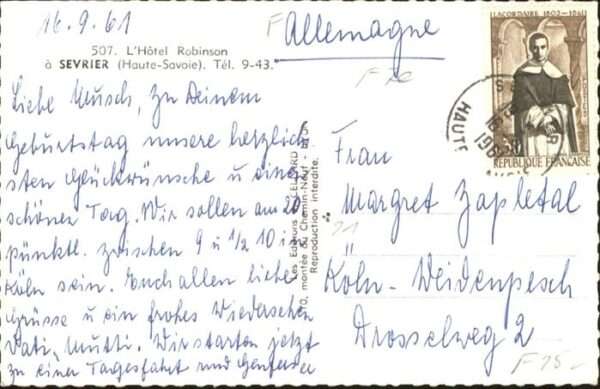 16.9.61
F Allemagne
507. L'Hôtel Robinson
à SEVRIER (Haute-Savoie). Tél. 9-43.
Liebe Musch, zu Deinem
Geburtstag unsere herzlich
sten Glückwünsche u einen
schönen Tag. Wir sollen am 20
pünktl. zwischen 9 u 1/2 10 in
Köln sein. Euch allen liebe
Grüsse u ein frohes Wiedersehen
Vati, Mutti. Wir starten jetzt
zu einer Tagesfahrt rund Genfersee
Les Editions
montée du Chemin-Neuf - LYON
Reproduction interdite.
LACORDAIRE 1802-1861
RÉPUBLIQUE FRANÇAISE
HAUTE
Frau
Margret Zapletal
21
Köln-Weidenpesch
Drosselweg 2
F 25.-